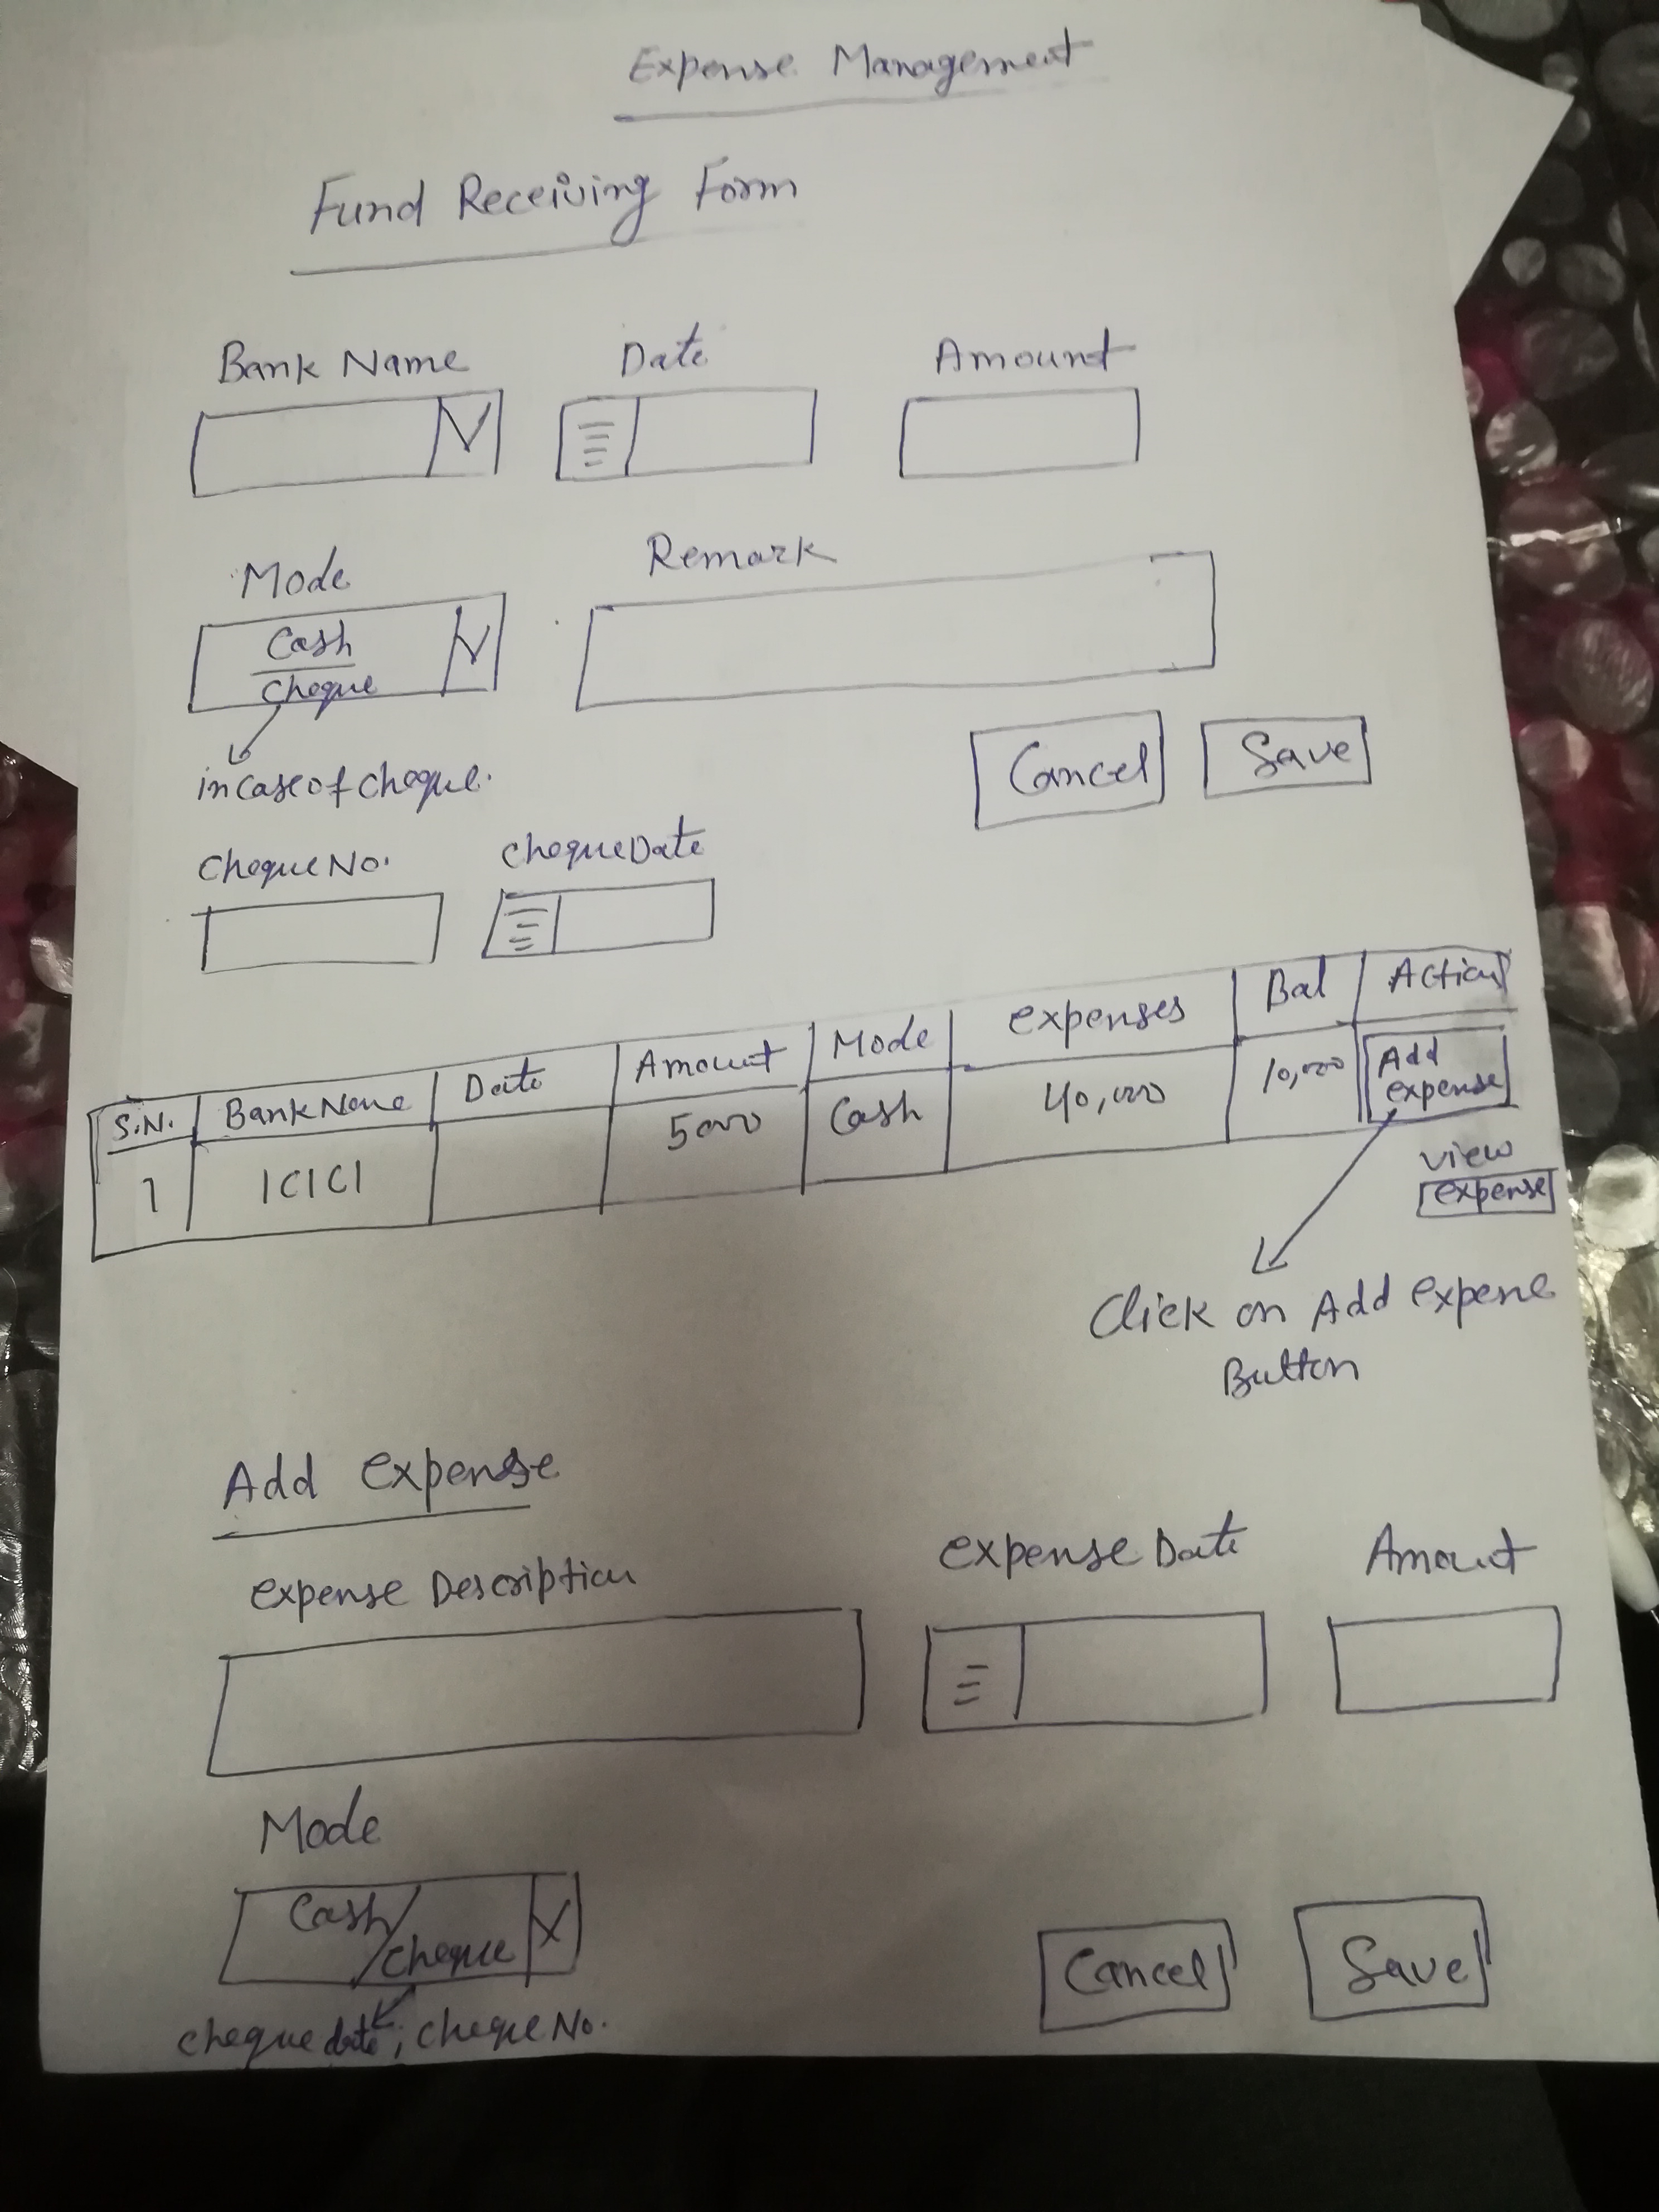 Expense Management
Fund Receiving Form
Bank Name Date Amount
Mode Remark
Cash
Cheque
in case of cheque.
Cancel Save
Cheque No. Cheque Date
S.N. Bank Name Date Amount Mode Expenses Bal Action
1 ICICI 5000 Cash 40,000 10,000 Add expense
view
expense
Click on Add expense
Button
Add expense
Expense Description Expense Date Amount
Mode
Cash/
cheque
Cancel Save
cheque date, cheque No.